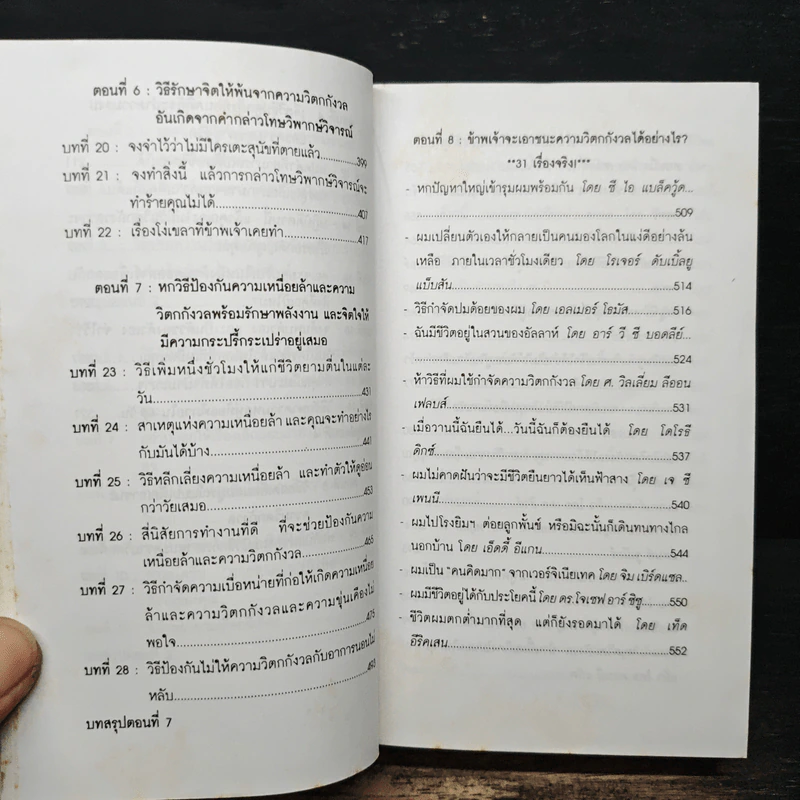 ตอนที่ 6 : วิธีรักษาจิตให้พ้นจากความวิตกกังวล
อันเกิดจากคำกล่าวโทษวิพากษ์วิจารณ์
บทที่ 20 : จงจำไว้ว่าไม่มีใครเตะสุนัขที่ตายแล้ว....................399
บทที่ 21 : จงทำสิ่งนี้ แล้วการกล่าวโทษวิพากษ์วิจารณ์จะ
ทำร้ายคุณไม่ได้....................407
บทที่ 22 : เรื่องโง่เขลาที่ข้าพเจ้าเคยทำ....................417
ตอนที่ 7 : หกวิธีป้องกันความเหนื่อยล้าและความ
วิตกกังวลพร้อมรักษาพลังงาน และจิตใจให้
มีความกระปรี้กระเปร่าอยู่เสมอ
บทที่ 23 : วิธีเพิ่มหนึ่งชั่วโมงให้แก่ชีวิตยามตื่นในแต่ละ
วัน....................431
บทที่ 24 : สาเหตุแห่งความเหนื่อยล้า และคุณจะทำอย่างไร
กับมันได้บ้าง....................441
บทที่ 25 : วิธีหลีกเลี่ยงความเหนื่อยล้า และทำตัวให้ดูอ่อน
กว่าวัยเสมอ....................453
บทที่ 26 : สี่นิสัยการทำงานที่ดี ที่จะช่วยป้องกันความ
เหนื่อยล้าและความวิตกกังวล....................465
บทที่ 27 : วิธีกำจัดความเบื่อหน่ายที่ก่อให้เกิดความเหนื่อย
ล้าและความวิตกกังวลและความขุ่นเคืองไม่
พอใจ....................476
บทที่ 28 : วิธีป้องกันไม่ให้ความวิตกกังวลกับอาการนอนไม่
หลับ....................493
บทสรุปตอนที่ 7
ตอนที่ 8 : ข้าพเจ้าจะเอาชนะความวิตกกังวลได้อย่างไร?
**31 เรื่องจริง!***
- หกปัญหาใหญ่เข้ารุมผมพร้อมกัน โดย ซี ไอ แบล็ควู้ด...
....................509
- ผมเปลี่ยนตัวเองให้กลายเป็นคนมองโลกในแง่ดีอย่างล้น
เหลือ ภายในเวลาชั่วโมงเดียว โดย โรเจอร์ ดับเบิ้ลยู
แบ็บสัน....................514
- วิธีกำจัดปมด้อยของผม โดย เอลเมอร์ โธมัส....................516
- ฉันมีชีวิตอยู่ในสวนของอัลลาห์ โดย อาร์ วี ซี บอดลีย์...
....................524
- ห้าวิธีที่ผมใช้กำจัดความวิตกกังวล โดย ศ. วิลเลี่ยม ลีออน
เฟลบส์....................531
- เมื่อวานนี้ฉันยืนได้ ...วันนี้ฉันก็ต้องยืนได้ โดย โดโรธี
ดิกซ์....................537
- ผมไม่คาดฝันว่าจะมีชีวิตยืนยาวได้เห็นฟ้าสาง โดย เจ ซี
เพนนี....................540
- ผมไปโรงยิมฯ ต่อยลูกพั้นช์ หรือมิฉะนั้นก็เดินทนทางไกล
นอกบ้าน โดย เอ็ดดี้ อีแกน....................544
- ผมเป็น "คนคิดมาก" จากเวอร์จิเนียเทค โดย จิม เบิร์ดแซล..
- ผมมีชีวิตอยู่ได้กับประโยคนี้ โดย ดร.โจเซฟ อาร์ ซิซู....................550
- ชีวิตผมตกต่ำมากที่สุด แต่ก็ยังรอดมาได้ โดย เท็ด
อีริคเสน....................552